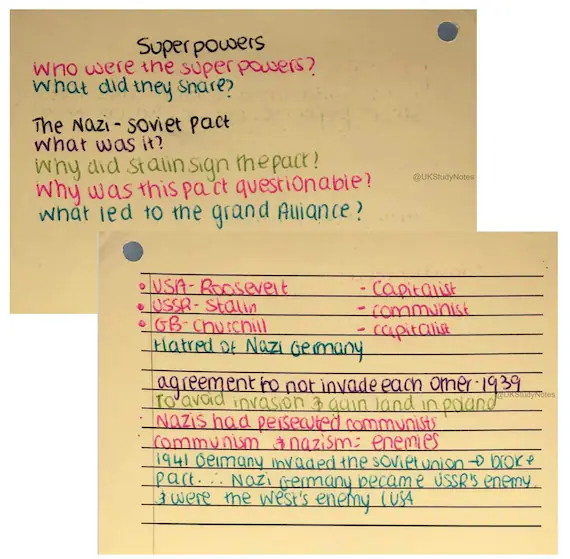 Superpowers
Who were the superpowers?
What did they share?
The Nazi-Soviet pact
What was it?
Why did Stalin sign the pact?
Why was this pact questionable?
What led to the grand Alliance?
@UKStudyNotes
• USA-Roosevelt - capitalist
• USSR- Stalin - communist
• GB-Churchill - capitalist
Hatred of Nazi Germany
agreement to not invade each other-1939
To avoid invasion & gain land in poland
@UKStudyNotes
Nazis had persecuted communists
communism & nazism= enemies
1941 Germany invaded the soviet union → broke
pact. ∴ Nazi Germany became USSR's enemy
& were the west's enemy (USA